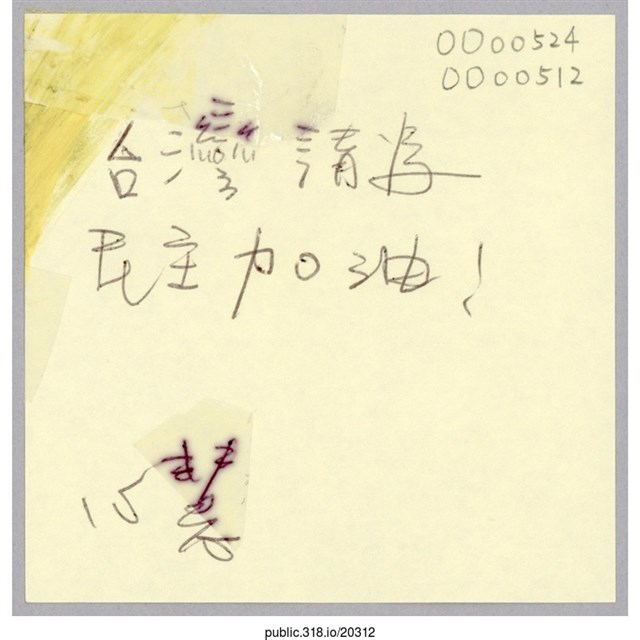 OD00524
OD00512
台灣 請為
民主加油!
public.318.io/20312